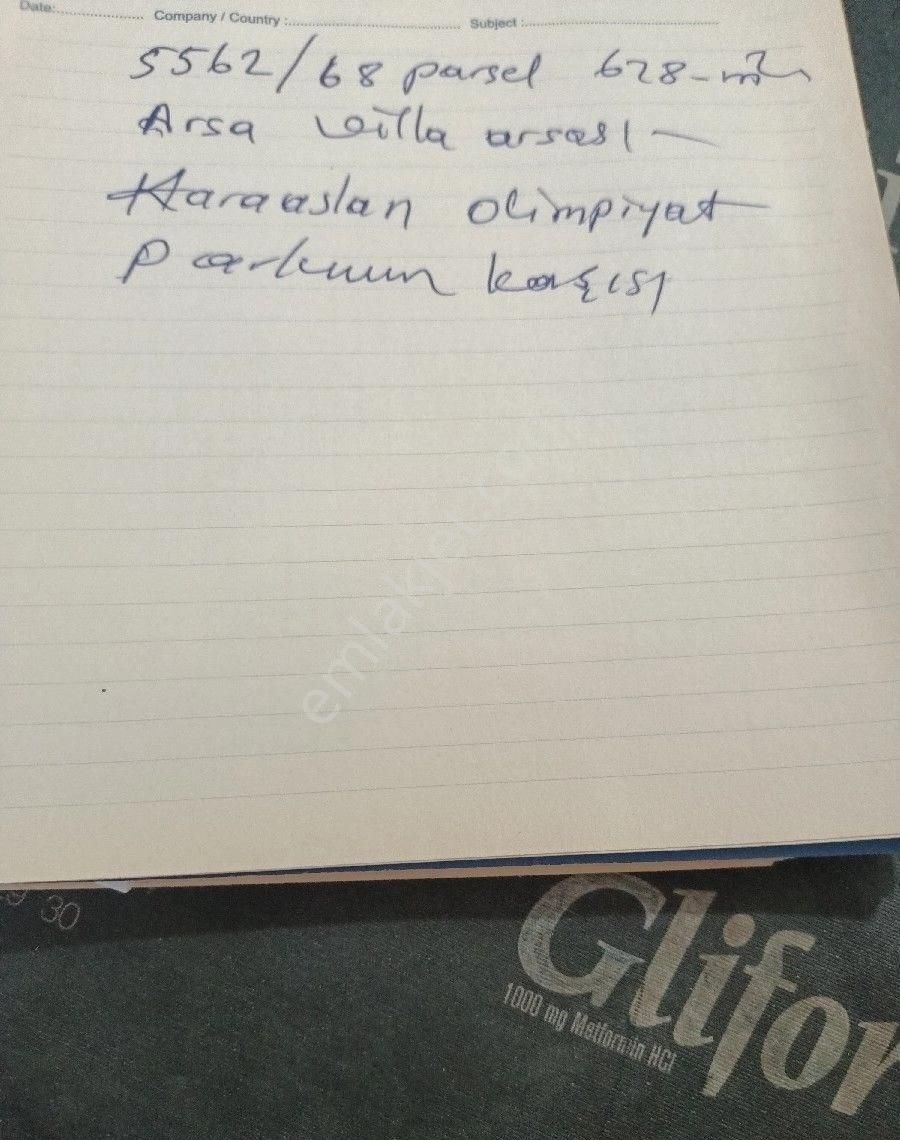 Date: Company / Country : Subject :
5562/68 parsel 628-m²
Arsa villa arsası
Karaaslan olimpiyat
Parkının karşısı
emlakjet.com
30
Glifor
1000 mg Metformin HCl